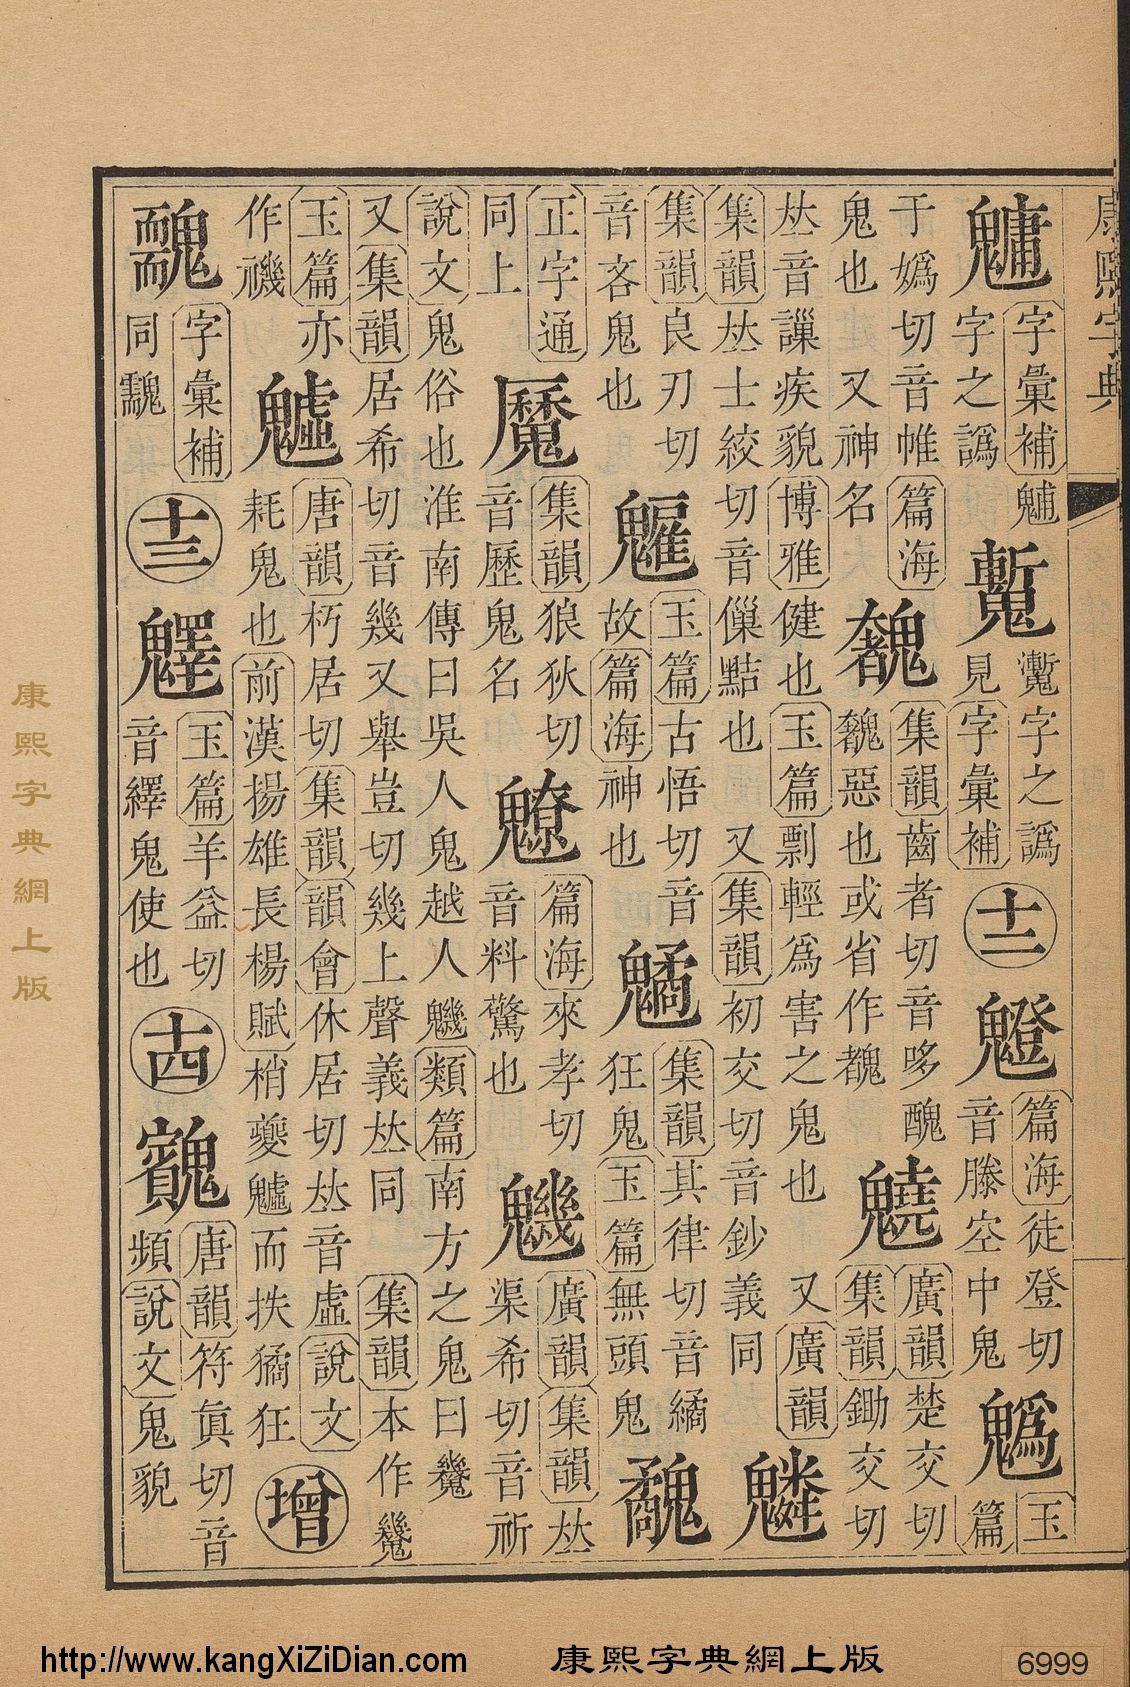 康熙字典
字彙補
字之譌
字之譌
見字彙補
十二
篇海徒登切
音滕空中鬼
玉篇
于嬀切音帷篇海
鬼也又神名
集韻齒者切音哆醜
惡也或省作
廣韻楚交切
集韻鋤交切
𠀤音讍疾貌博雅健也玉篇剽輕爲害之鬼也又廣韻
集韻𠀤士絞切音僺黠也又集韻初交切音鈔義同
集韻良刃切
音吝鬼也
玉篇古悟切音
故篇海神也
集韻其律切音繘
狂鬼玉篇無頭鬼
正字通
同上
集韻狼狄切
音歷鬼名
篇海來孝切
音料驚也
魕
廣韻集韻𠀤
渠希切音祈
說文鬼俗也淮南傳曰吳人鬼越人魕類篇南方之鬼曰
又集韻居希切音幾又舉豈切幾上聲義𠀤同集韻本作
玉篇亦
作禨
魖
唐韻朽居切集韻韻會休居切𠀤音虛說文
耗鬼也前漢揚雄長楊賦梢夔魖而抶獝狂
增
字彙補
同
十三
玉篇羊益切
音繹鬼使也
十四
唐韻符眞切音
頻說文鬼貌
康熙字典網上版
http://www.kangXiZiDian.com
康熙字典網上版
6999